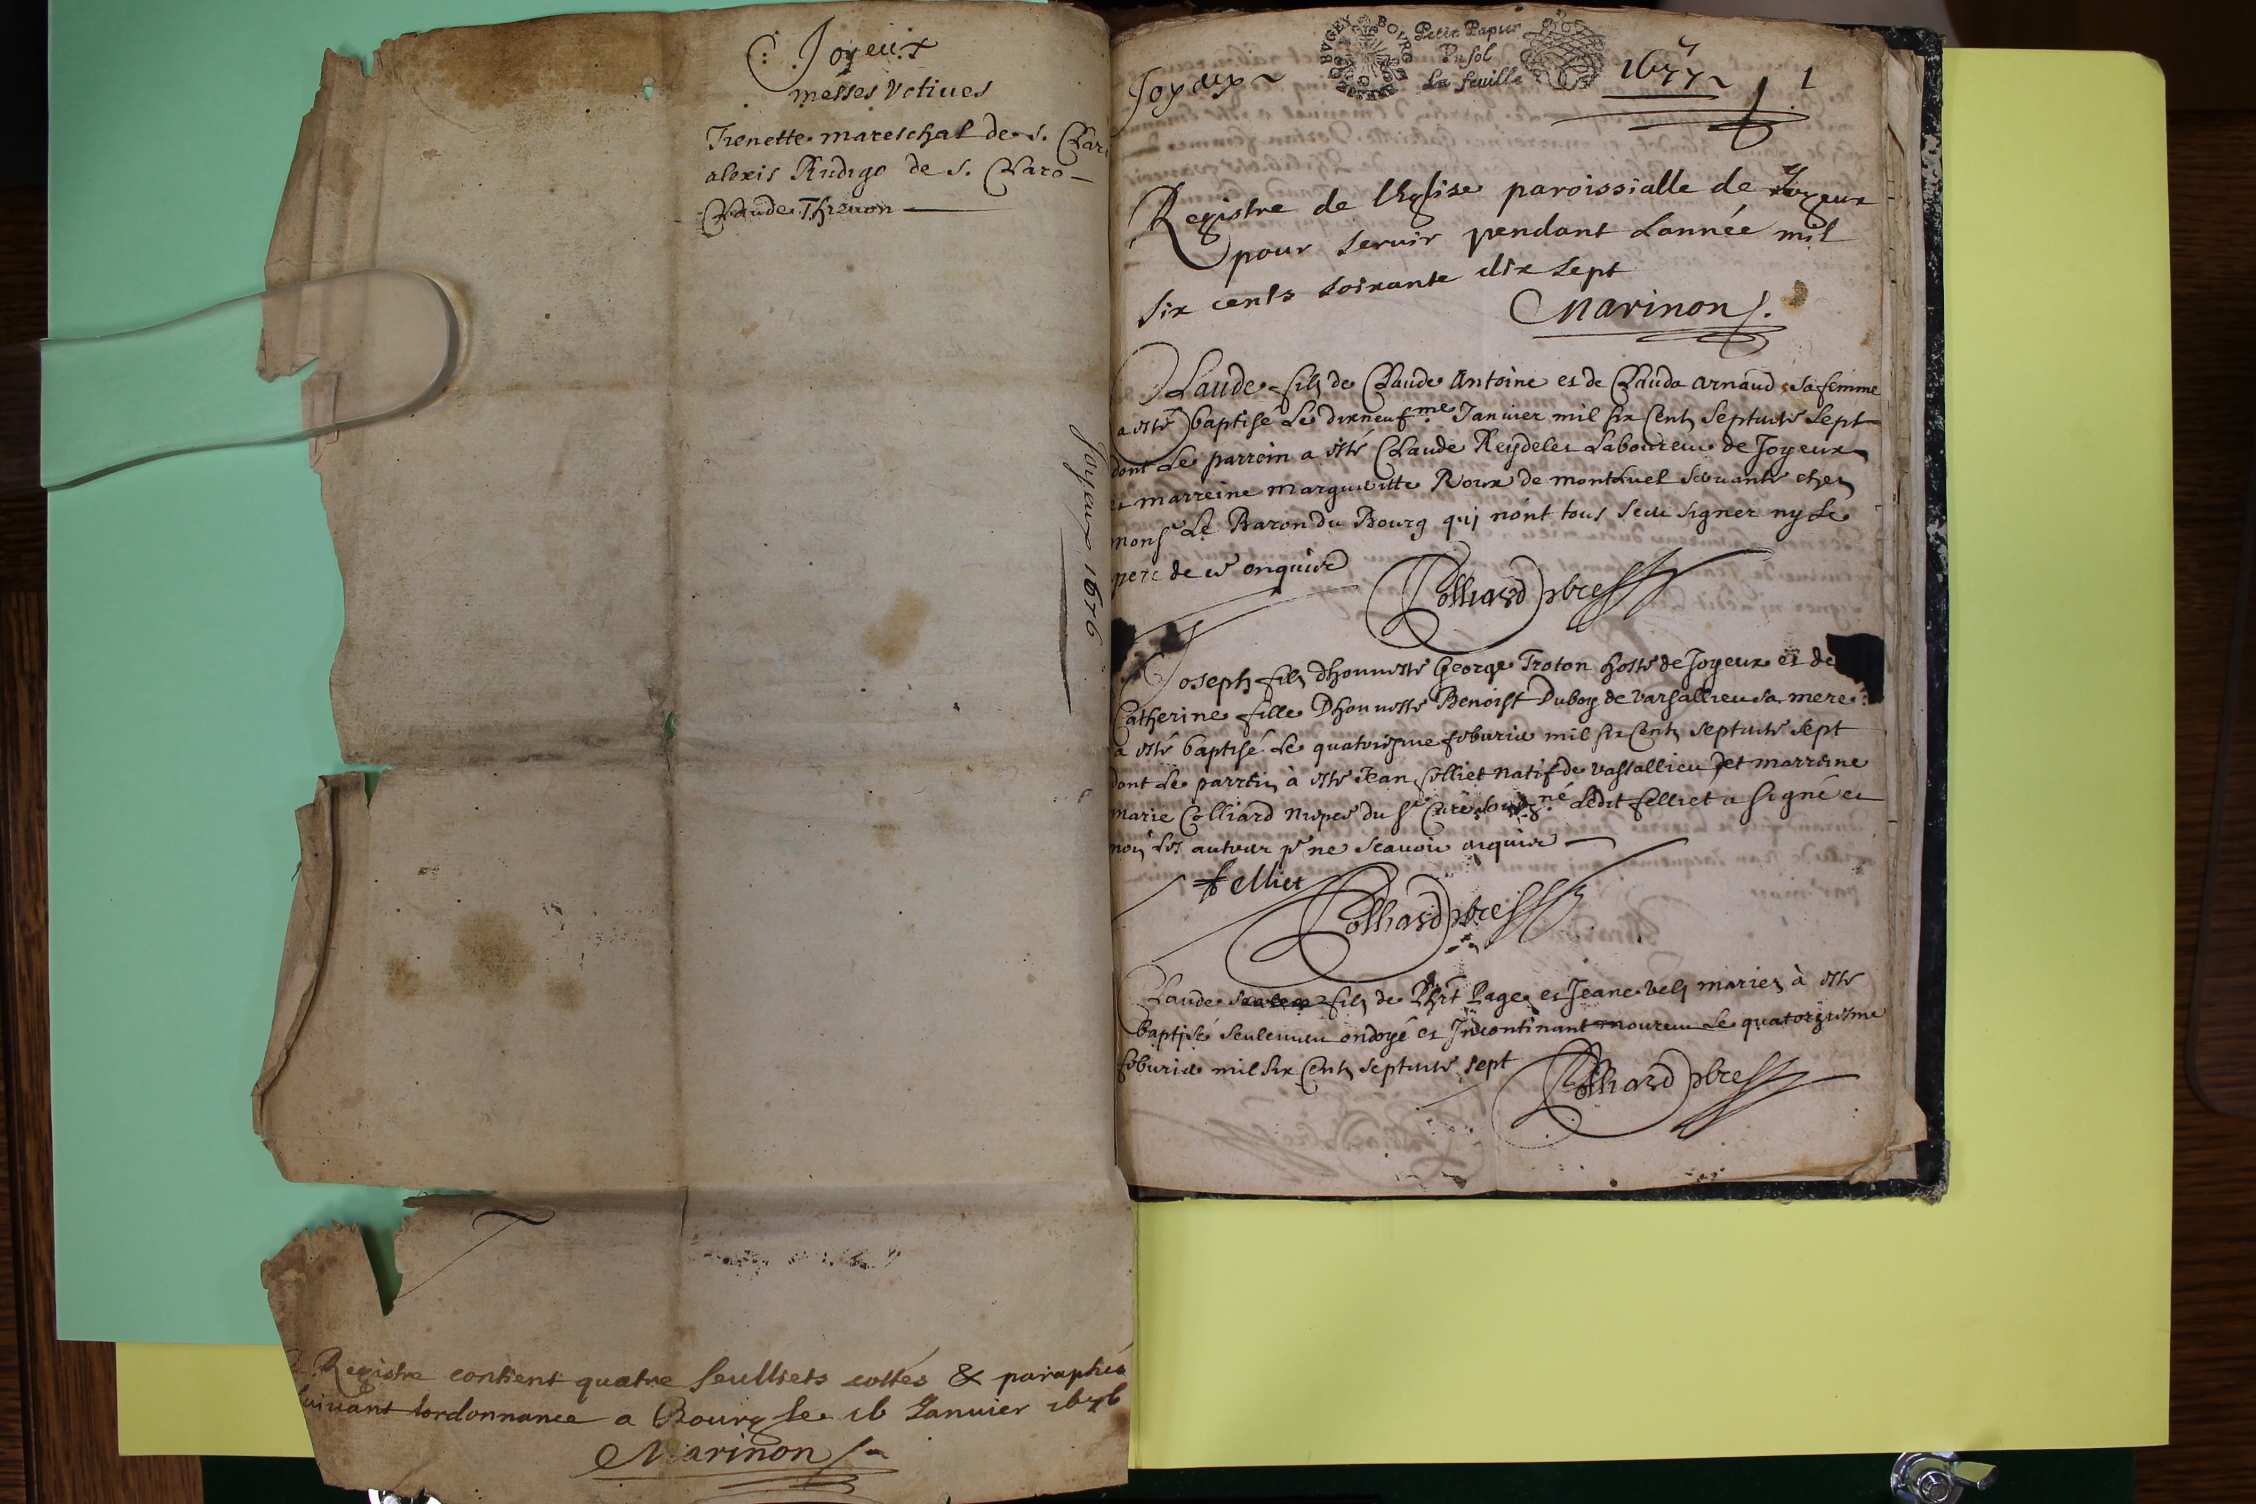 Joyeux
messes Votives
Trenette mareschal de S.
alexis Rudigo de S. Claro
Claude Threnon
Joyeux 1676
Registre contient quatre feulliets cottés & paraphés
suivant lordonnance a Bourg le 16 Janvier 1676
Marinon
BVGEY BOVRG
Petit Papier
Vn sol
La feuille
Joyeux
1677
1
Registre de lEglise paroissialle de Joyeux
pour servir pendant Lannée mil
six cents soixante dix sept
Marinon
Claude fils de Claude Antoine et de Clauda Arnaud sa femme
a esté baptise le dixneufme Janvier mil six Cents septante sept
dont Le parrein a esté Claude Reydelet Laboureur de Joyeux
et marreine margueritte Roux de montluel servante chez
monsr Le Baron du Bourg qui nont tous sceu signer ny le
pere de ce enquis
Colliard pbre
Joseph fils dhonneste George Troton hoste de Joyeux et de
Catherine fille Dhonneste Benoist Duboy de varsallieu sa mere
a esté baptisé Le quatorzieme febvrier mil six Cents septante sept
dont Le parrein à esté Jean felliet natif de vassallieu et marreine
marie Colliard niepce du Sr Curé soubsigné Ledit felliet a signé et
non les autres pr ne scavoir enquis
felliet
Colliard pbre
Claude fils de Phit Page et Jeane mariez à esté
baptisé seulement ondoyé et Incontinant mourru Le quatorzieme
febvrier mil six Cents septante sept
Colliard pbre